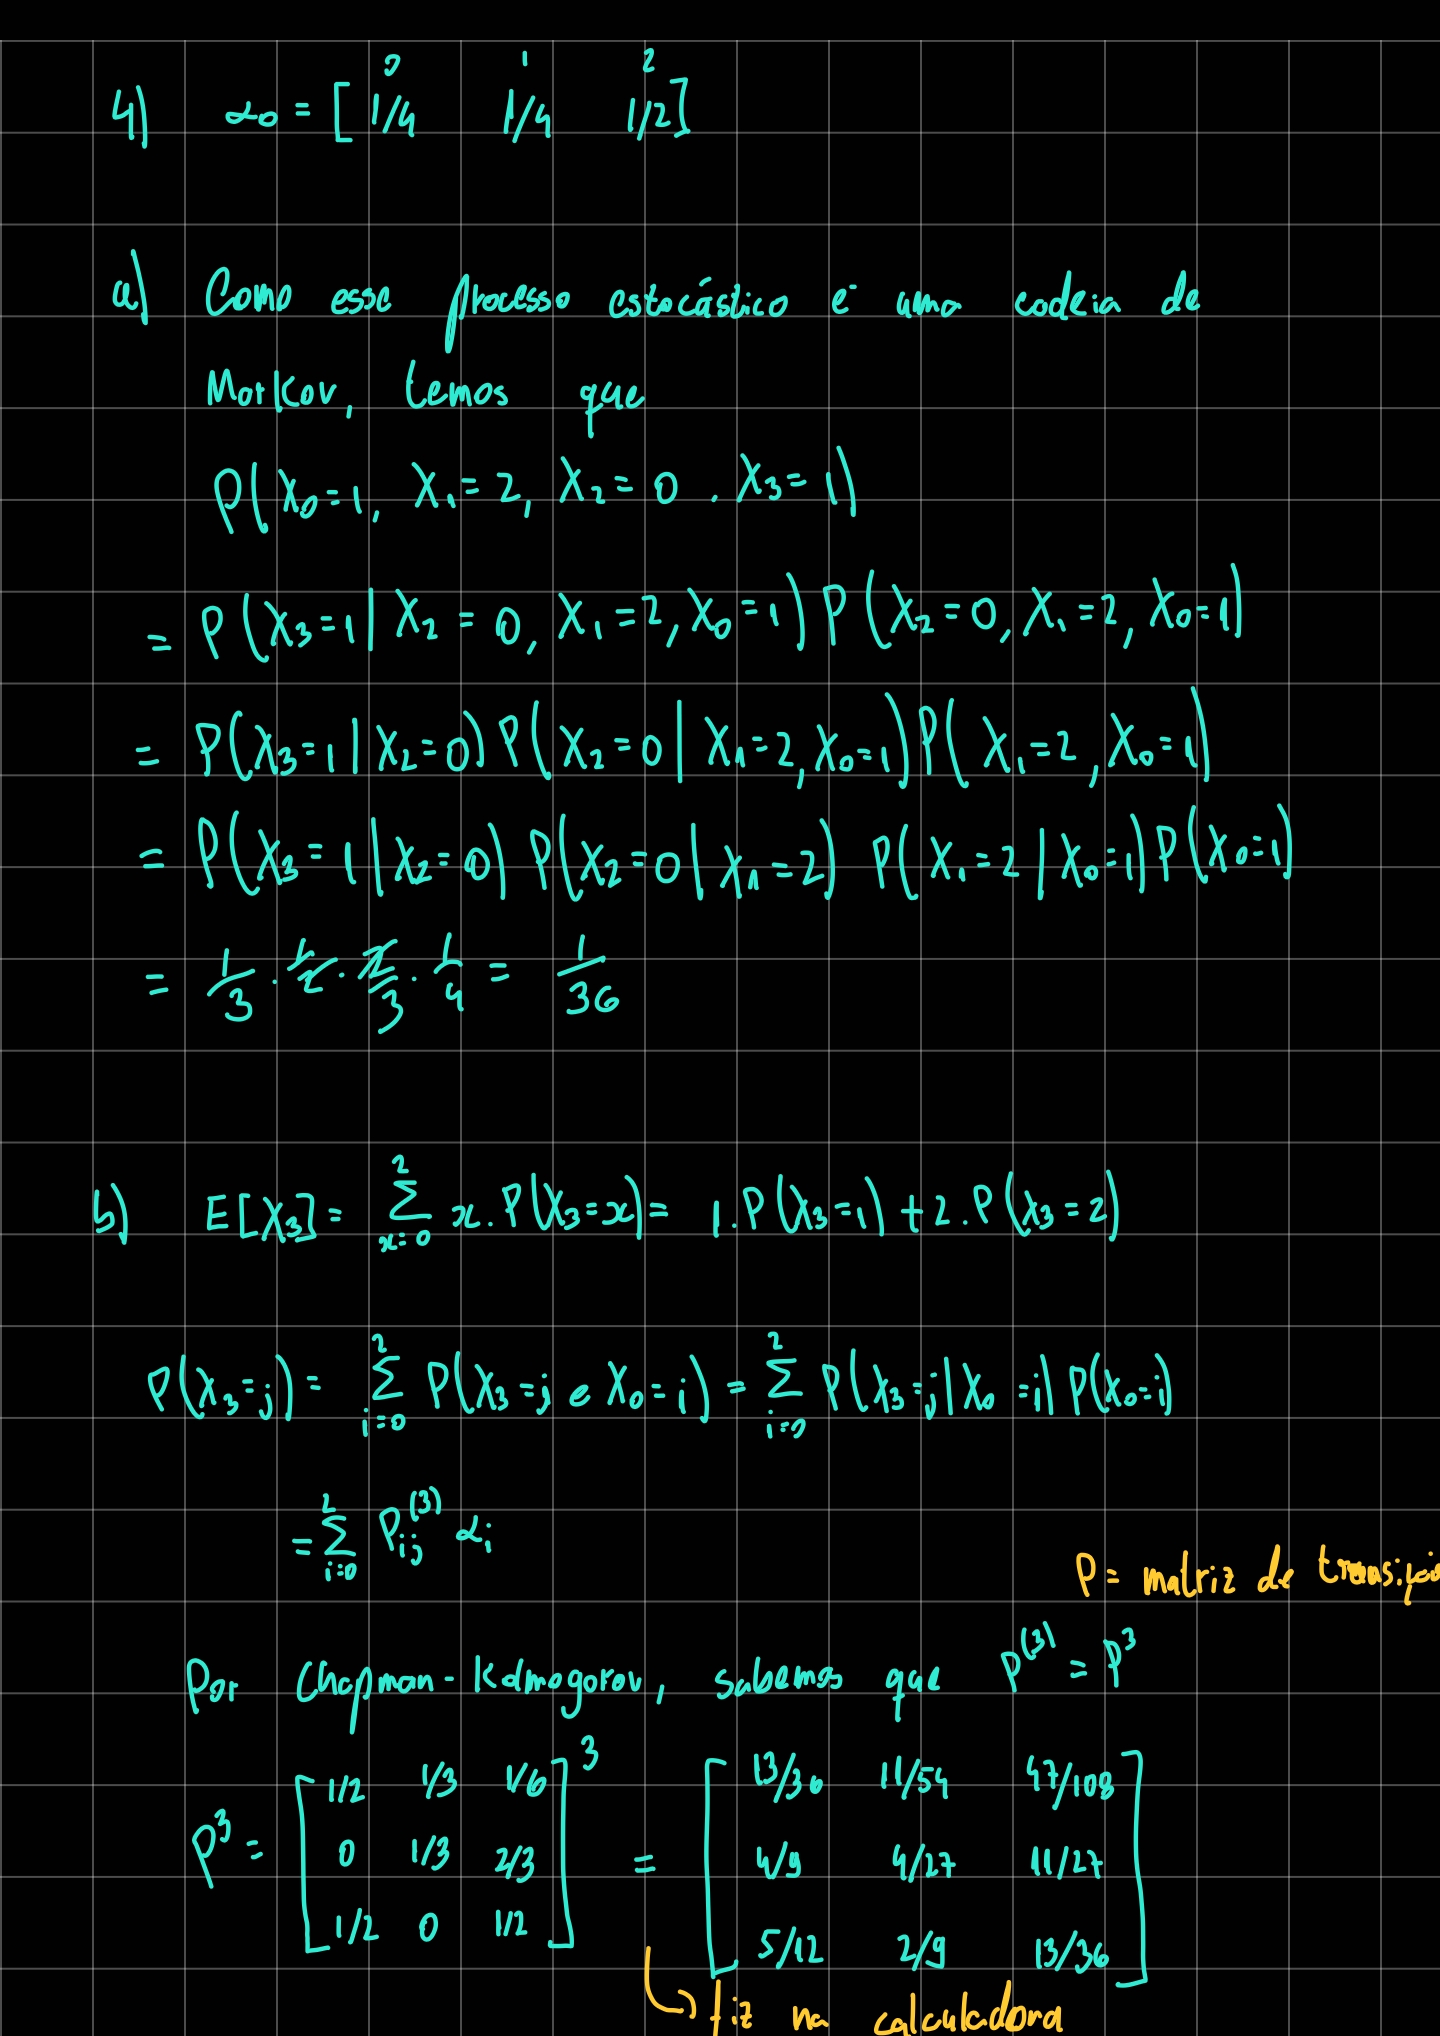 0 1 2
4) α₀ = [ 1/4 1/4 1/2 ]
a) Como esse processo estocástico é uma cadeia de
Markov, temos que
P(X₀=1, X₁=2, X₂=0 , X₃=1)
= P(X₃=1 | X₂=0, X₁=2, X₀=1) P(X₂=0, X₁=2, X₀=1)
= P(X₃=1 | X₂=0) P(X₂=0 | X₁=2, X₀=1) P(X₁=2, X₀=1)
= P(X₃=1 | X₂=0) P(X₂=0 | X₁=2) P(X₁=2 | X₀=1) P(X₀=1)
= 1/3 . 1/2 . 2/3 . 1/4 = 1/36
b) E[X₃] = ∑_{x=0}^{2} x . P(X₃=x) = 1.P(X₃=1) + 2.P(X₃=2)
P(X₃=j) = ∑_{i=0}^{2} P(X₃=j e X₀=i) = ∑_{i=0}^{2} P(X₃=j | X₀=i) P(X₀=i)
= ∑_{i=0}^{2} P_{ij}^{(3)} α_i
P = matriz de transição
Por Chapman-Kolmogorov, sabemos que P^{(3)} = P³
1/2 1/3 1/6 3 13/36 11/54 47/108
P³ = 0 1/3 2/3 = 4/9 4/27 11/27
1/2 0 1/2 5/12 2/9 13/36
fiz na calculadora